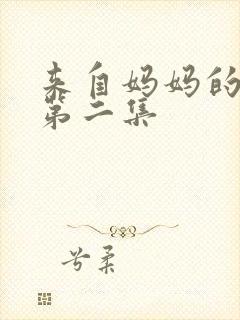 来自妈妈的
第二集
兮柔